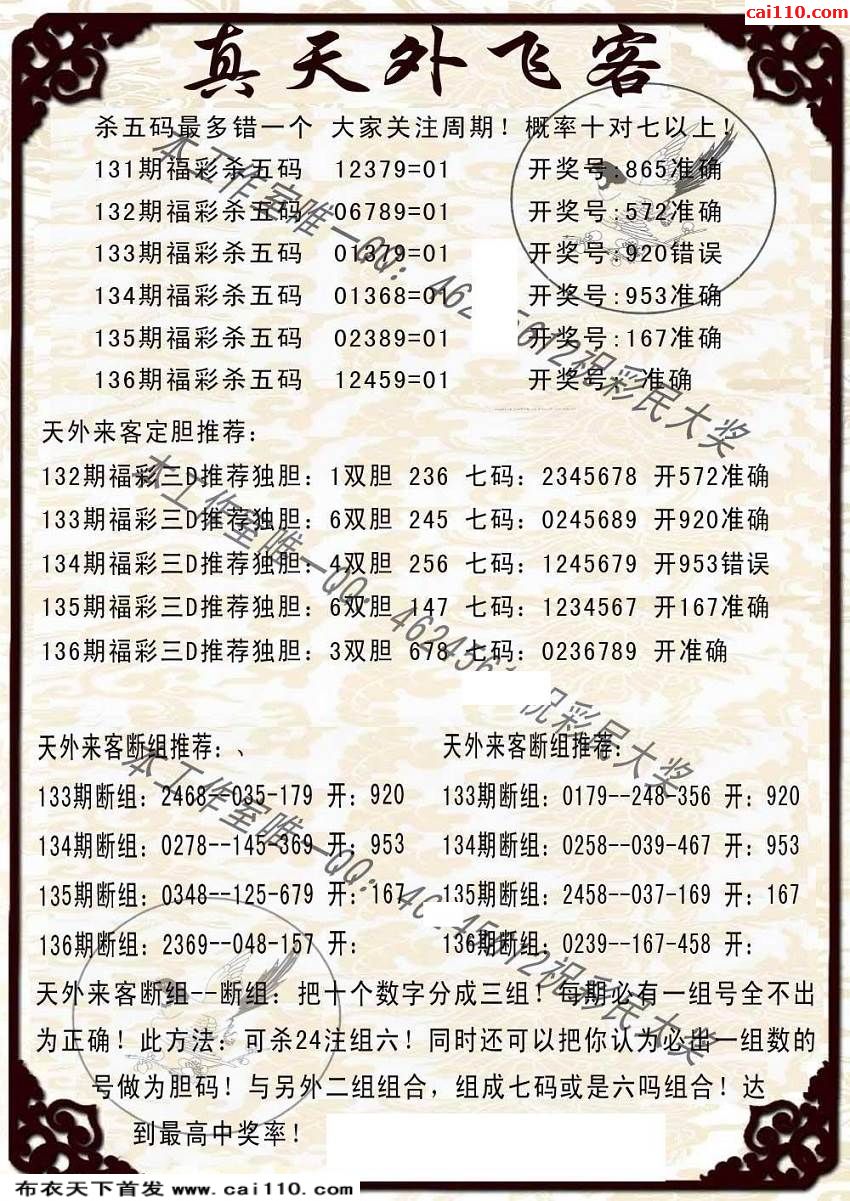 cai110.com
真天外飞客
杀五码最多错一个 大家关注周期！概率十对七以上！
131期福彩杀五码 12379=01 开奖号:865准确
132期福彩杀五码 06789=01 开奖号:572准确
133期福彩杀五码 01379=01 开奖号:920错误
134期福彩杀五码 01368=01 开奖号:953准确
135期福彩杀五码 02389=01 开奖号:167准确
136期福彩杀五码 12459=01 开奖号: 准确
天外来客定胆推荐：
132期福彩三D推荐独胆：1双胆 236 七码：2345678 开572准确
133期福彩三D推荐独胆：6双胆 245 七码：0245689 开920准确
134期福彩三D推荐独胆：4双胆 256 七码：1245679 开953错误
135期福彩三D推荐独胆：6双胆 147 七码：1234567 开167准确
136期福彩三D推荐独胆：3双胆 678 七码：0236789 开准确
天外来客断组推荐：、 天外来客断组推荐：
133期断组：2468--035-179 开：920 133期断组：0179--248-356 开：920
134期断组：0278--145-369 开：953 134期断组：0258--039-467 开：953
135期断组：0348--125-679 开：167 135期断组：2458--037-169 开：167
136期断组：2369--048-157 开： 136期断组：0239--167-458 开：
天外来客断组--断组：把十个数字分成三组！每期必有一组号全不出
为正确！此方法：可杀24注组六！同时还可以把你认为必出一组数的
号做为胆码！与另外二组组合，组成七码或是六吗组合！达
到最高中奖率！
本工作室唯一QQ：462 5612祝彩民大奖
本工作室唯一QQ：462456 祝彩民大奖
本工作室唯一QQ：46 45612祝彩民大奖
布衣天下首发 www.cai110.com